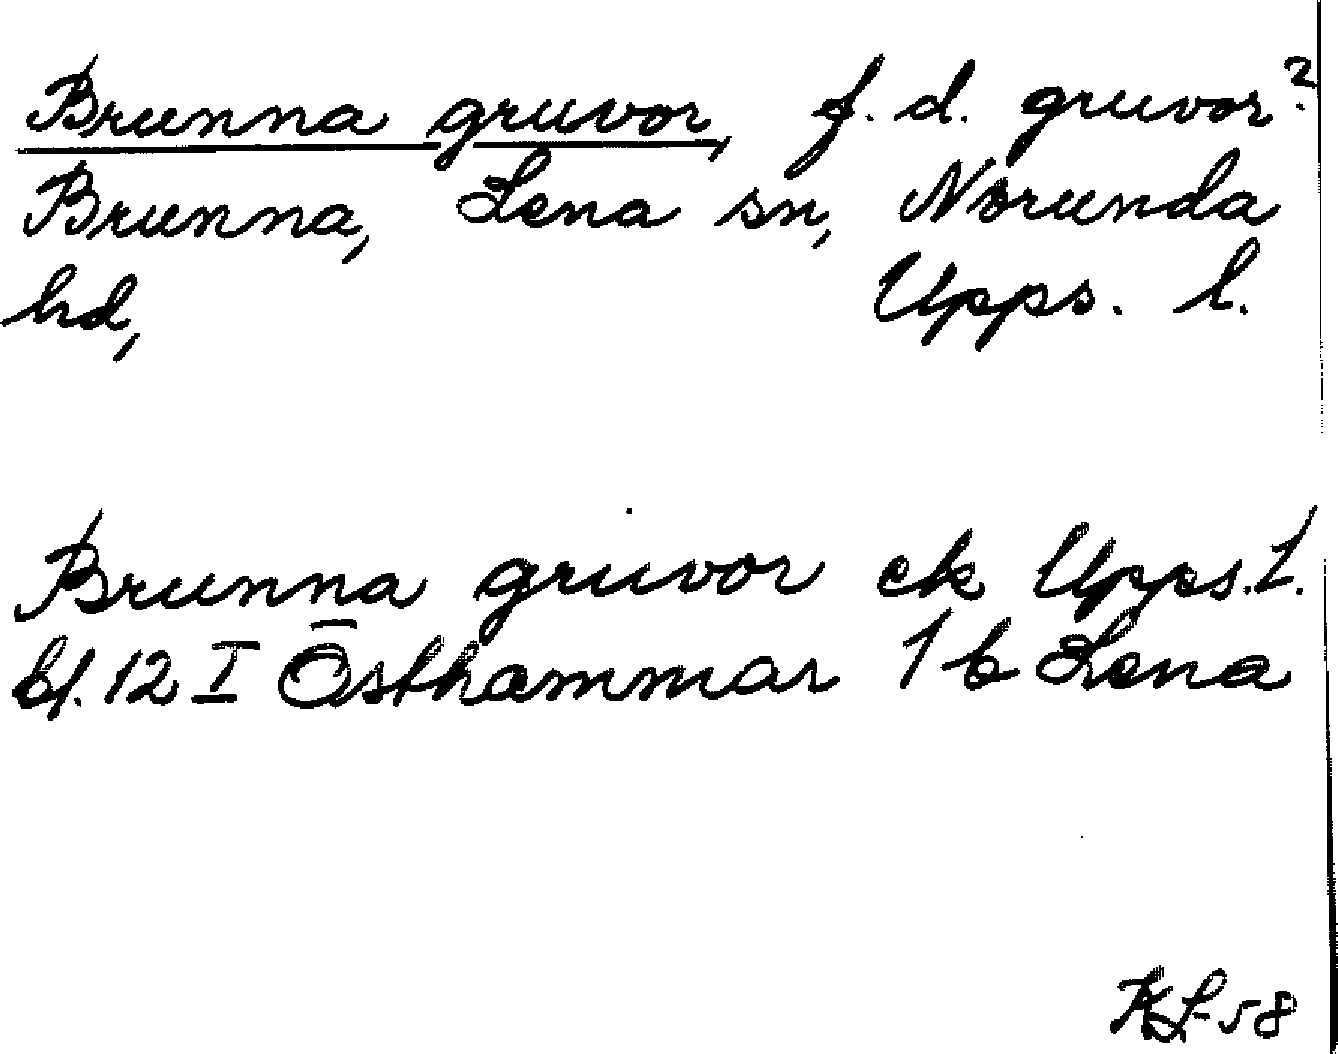 Brunna gruvor, f. d. gruvor?
Brunna, Lena sn, Norunda
hd, Upps. l.
Brunna gruvor ek Upps. l.
bl. 12 I Östhammar 1 b Lena
KL-58